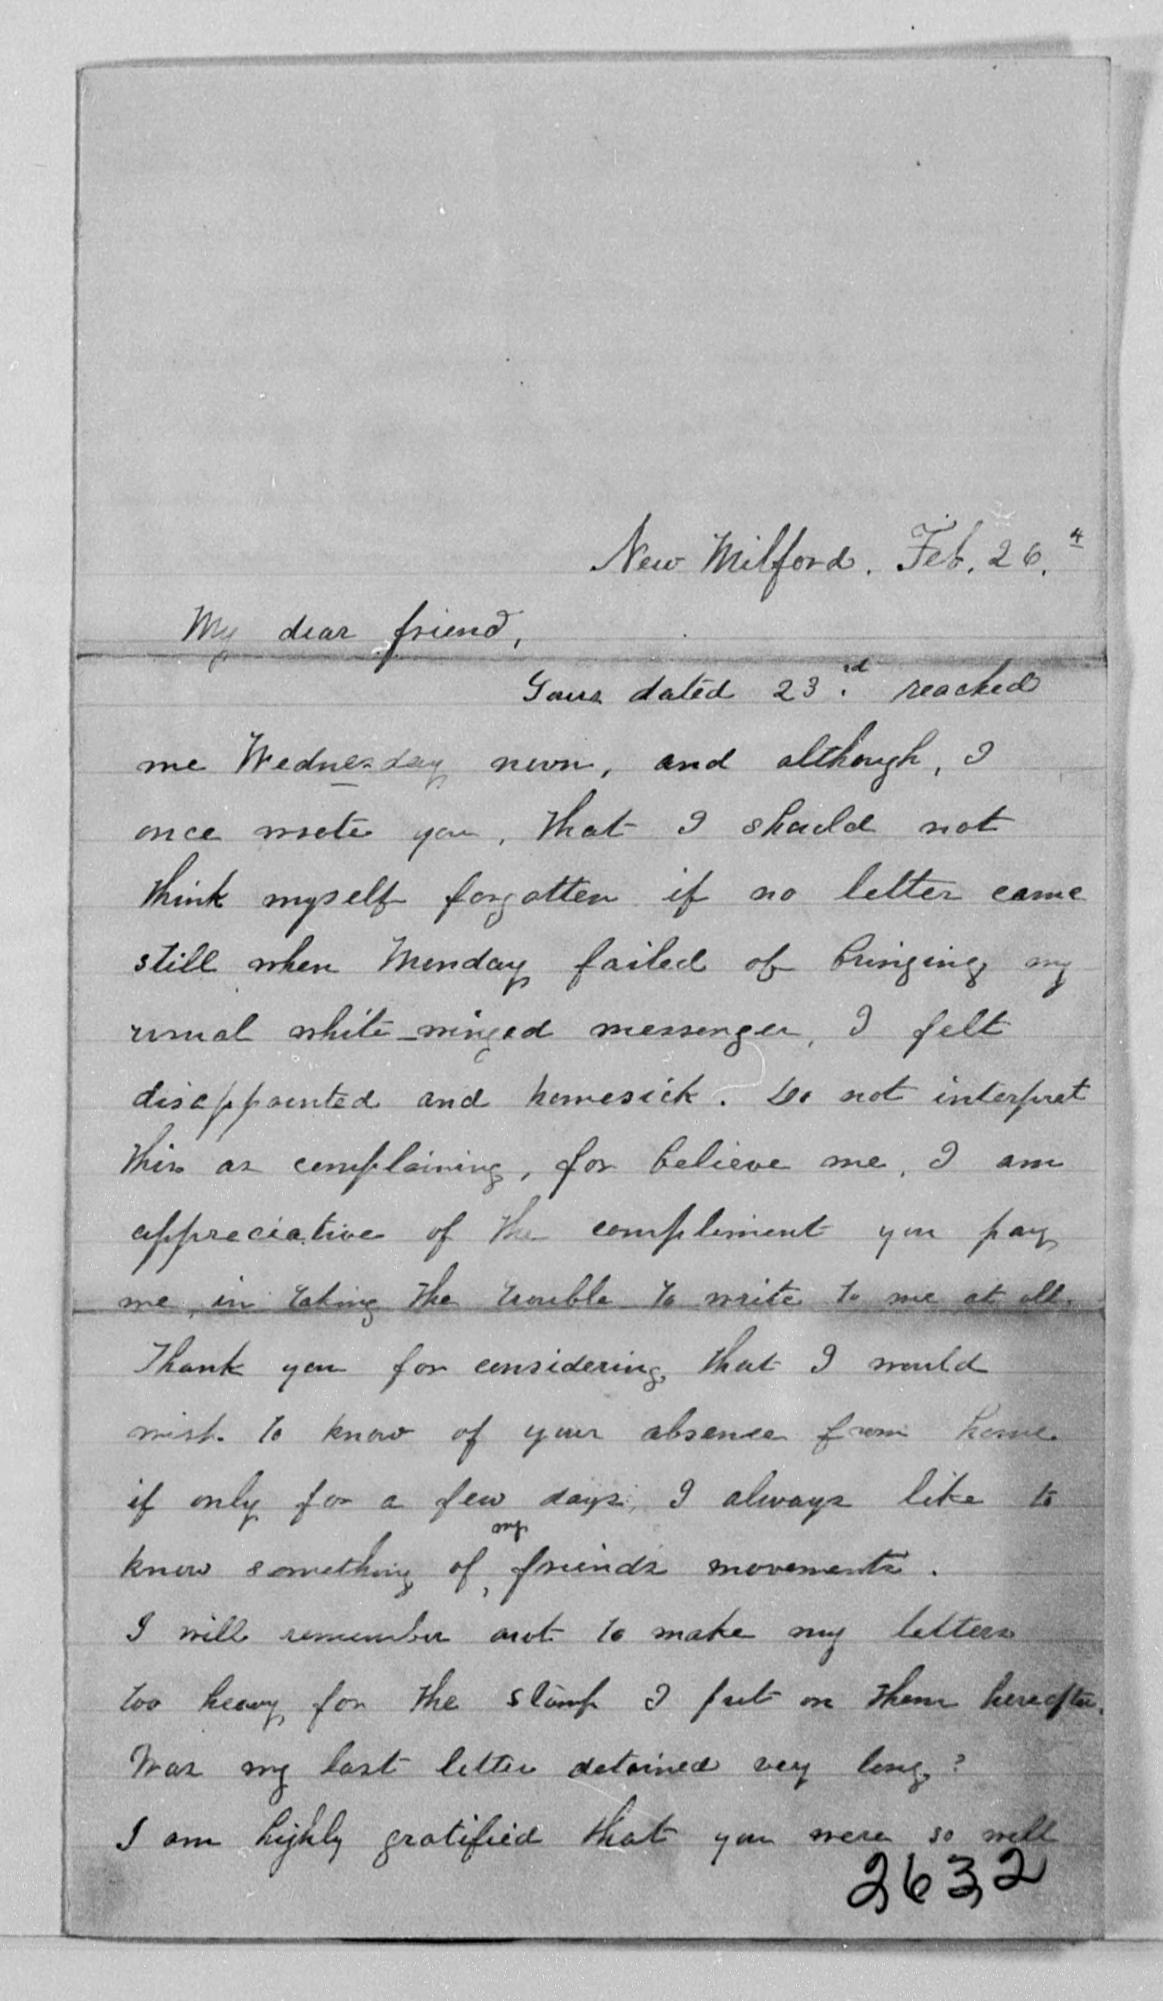 New Milford. Feb. 26.th
My dear friend,
Yours dated 23.rd reached
me Wednesday noon, and although, I
once wrote you, that I should not
think myself forgotten if no letter came
still when Monday failed of bringing my
usual white-winged messenger, I felt
disappointed and homesick. Do not interpret
this as complaining, for believe me, I am
appreciative of the compliment you pay
me, in taking the trouble to write to me at all.
Thank you for considering that I would
wish to know of your absence from home
if only for a few days, I always like to
my
know something of friends movements.
I will remember not to make my letters
too heavy for the stamp I put on them hereafter.
Was my last letter detained very long?
I am highly gratified that you were so well
2632